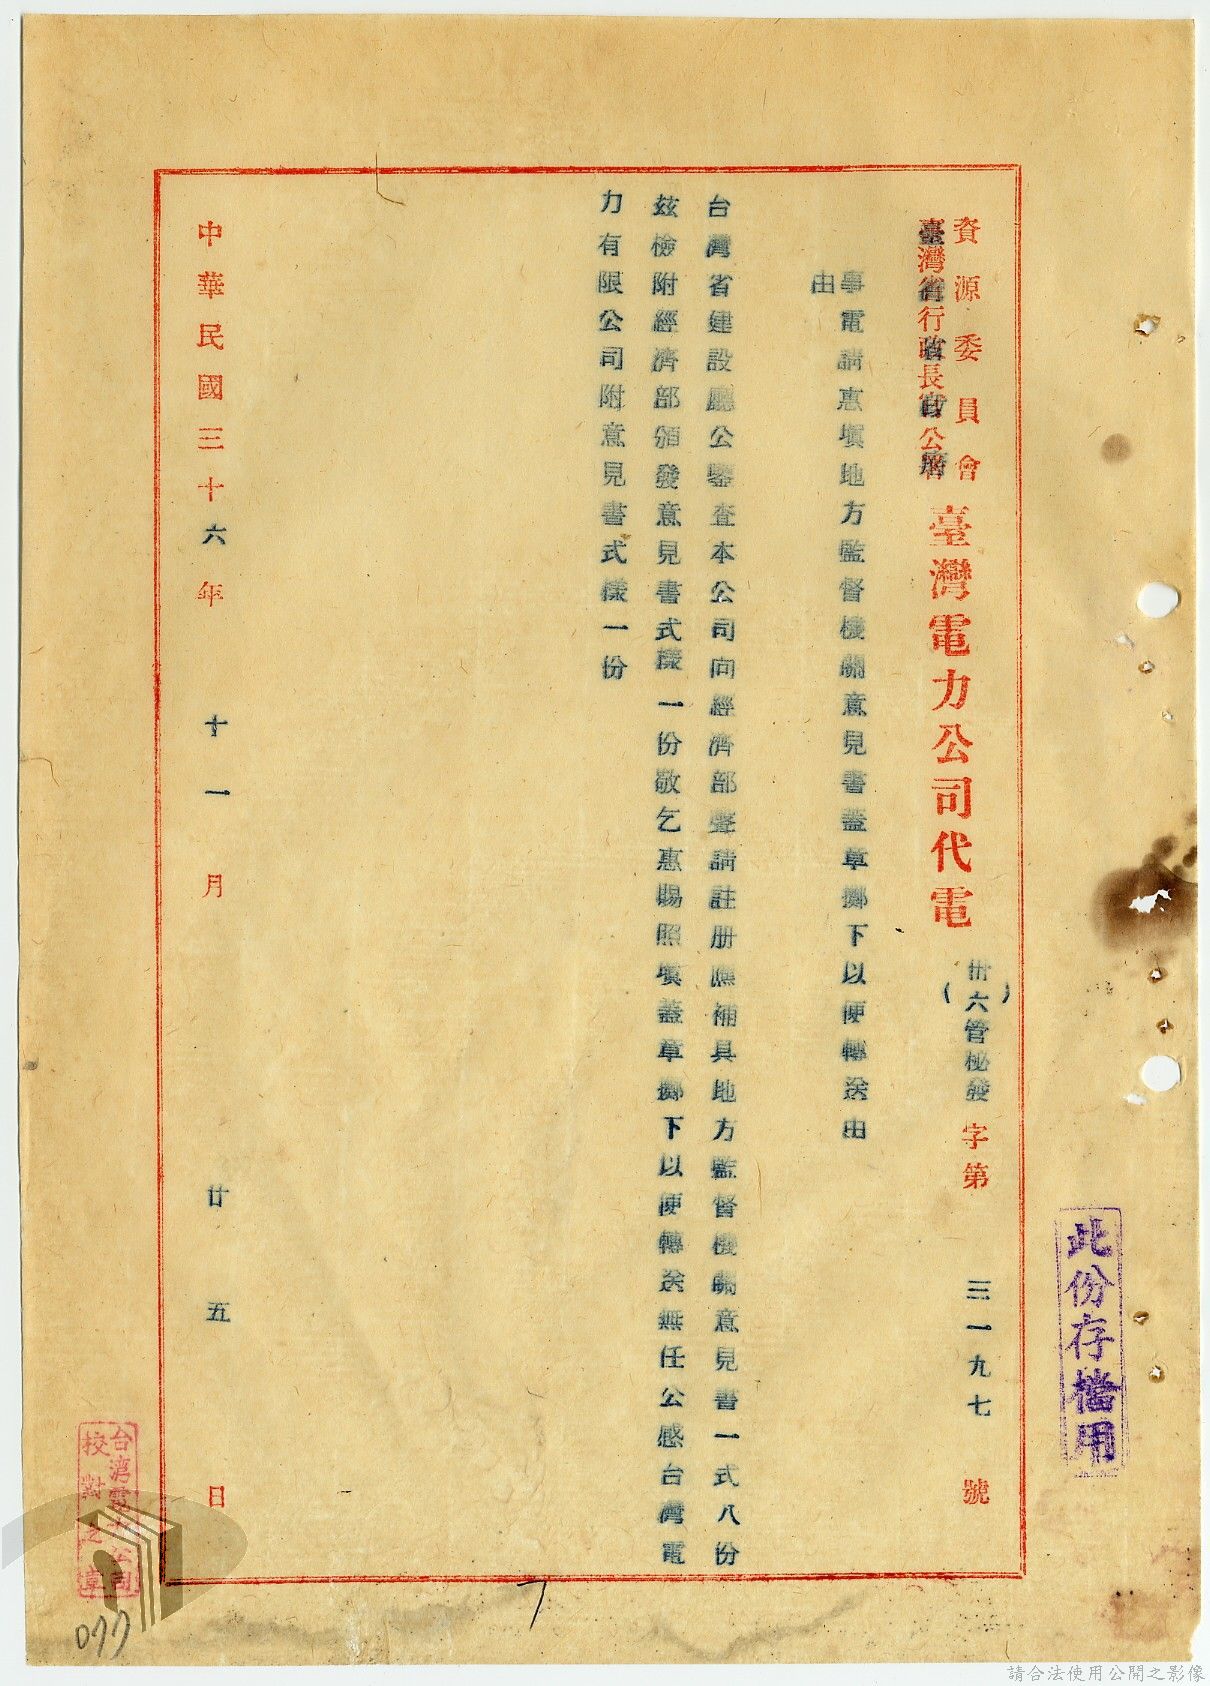 此份存檔用
資源委員會
臺灣省行政長官公署
臺灣電力公司代電
(卅六管秘發 字第 三一九七 號)
事電請惠填地方監督機關意見書蓋章擲下以便轉送由
由
台灣省建設廳公鑒查本公司向經濟部聲請註册應補具地方監督機關意見書一式八份
茲檢附經濟部頒發意見書式樣一份敬乞惠賜照填蓋章擲下以便轉送無任公感台灣電
力有限公司附意見書式樣一份
中華民國三十六年 十一月 廿五日
台湾電力公司
校對之章
077
7
請合法使用公開之影像